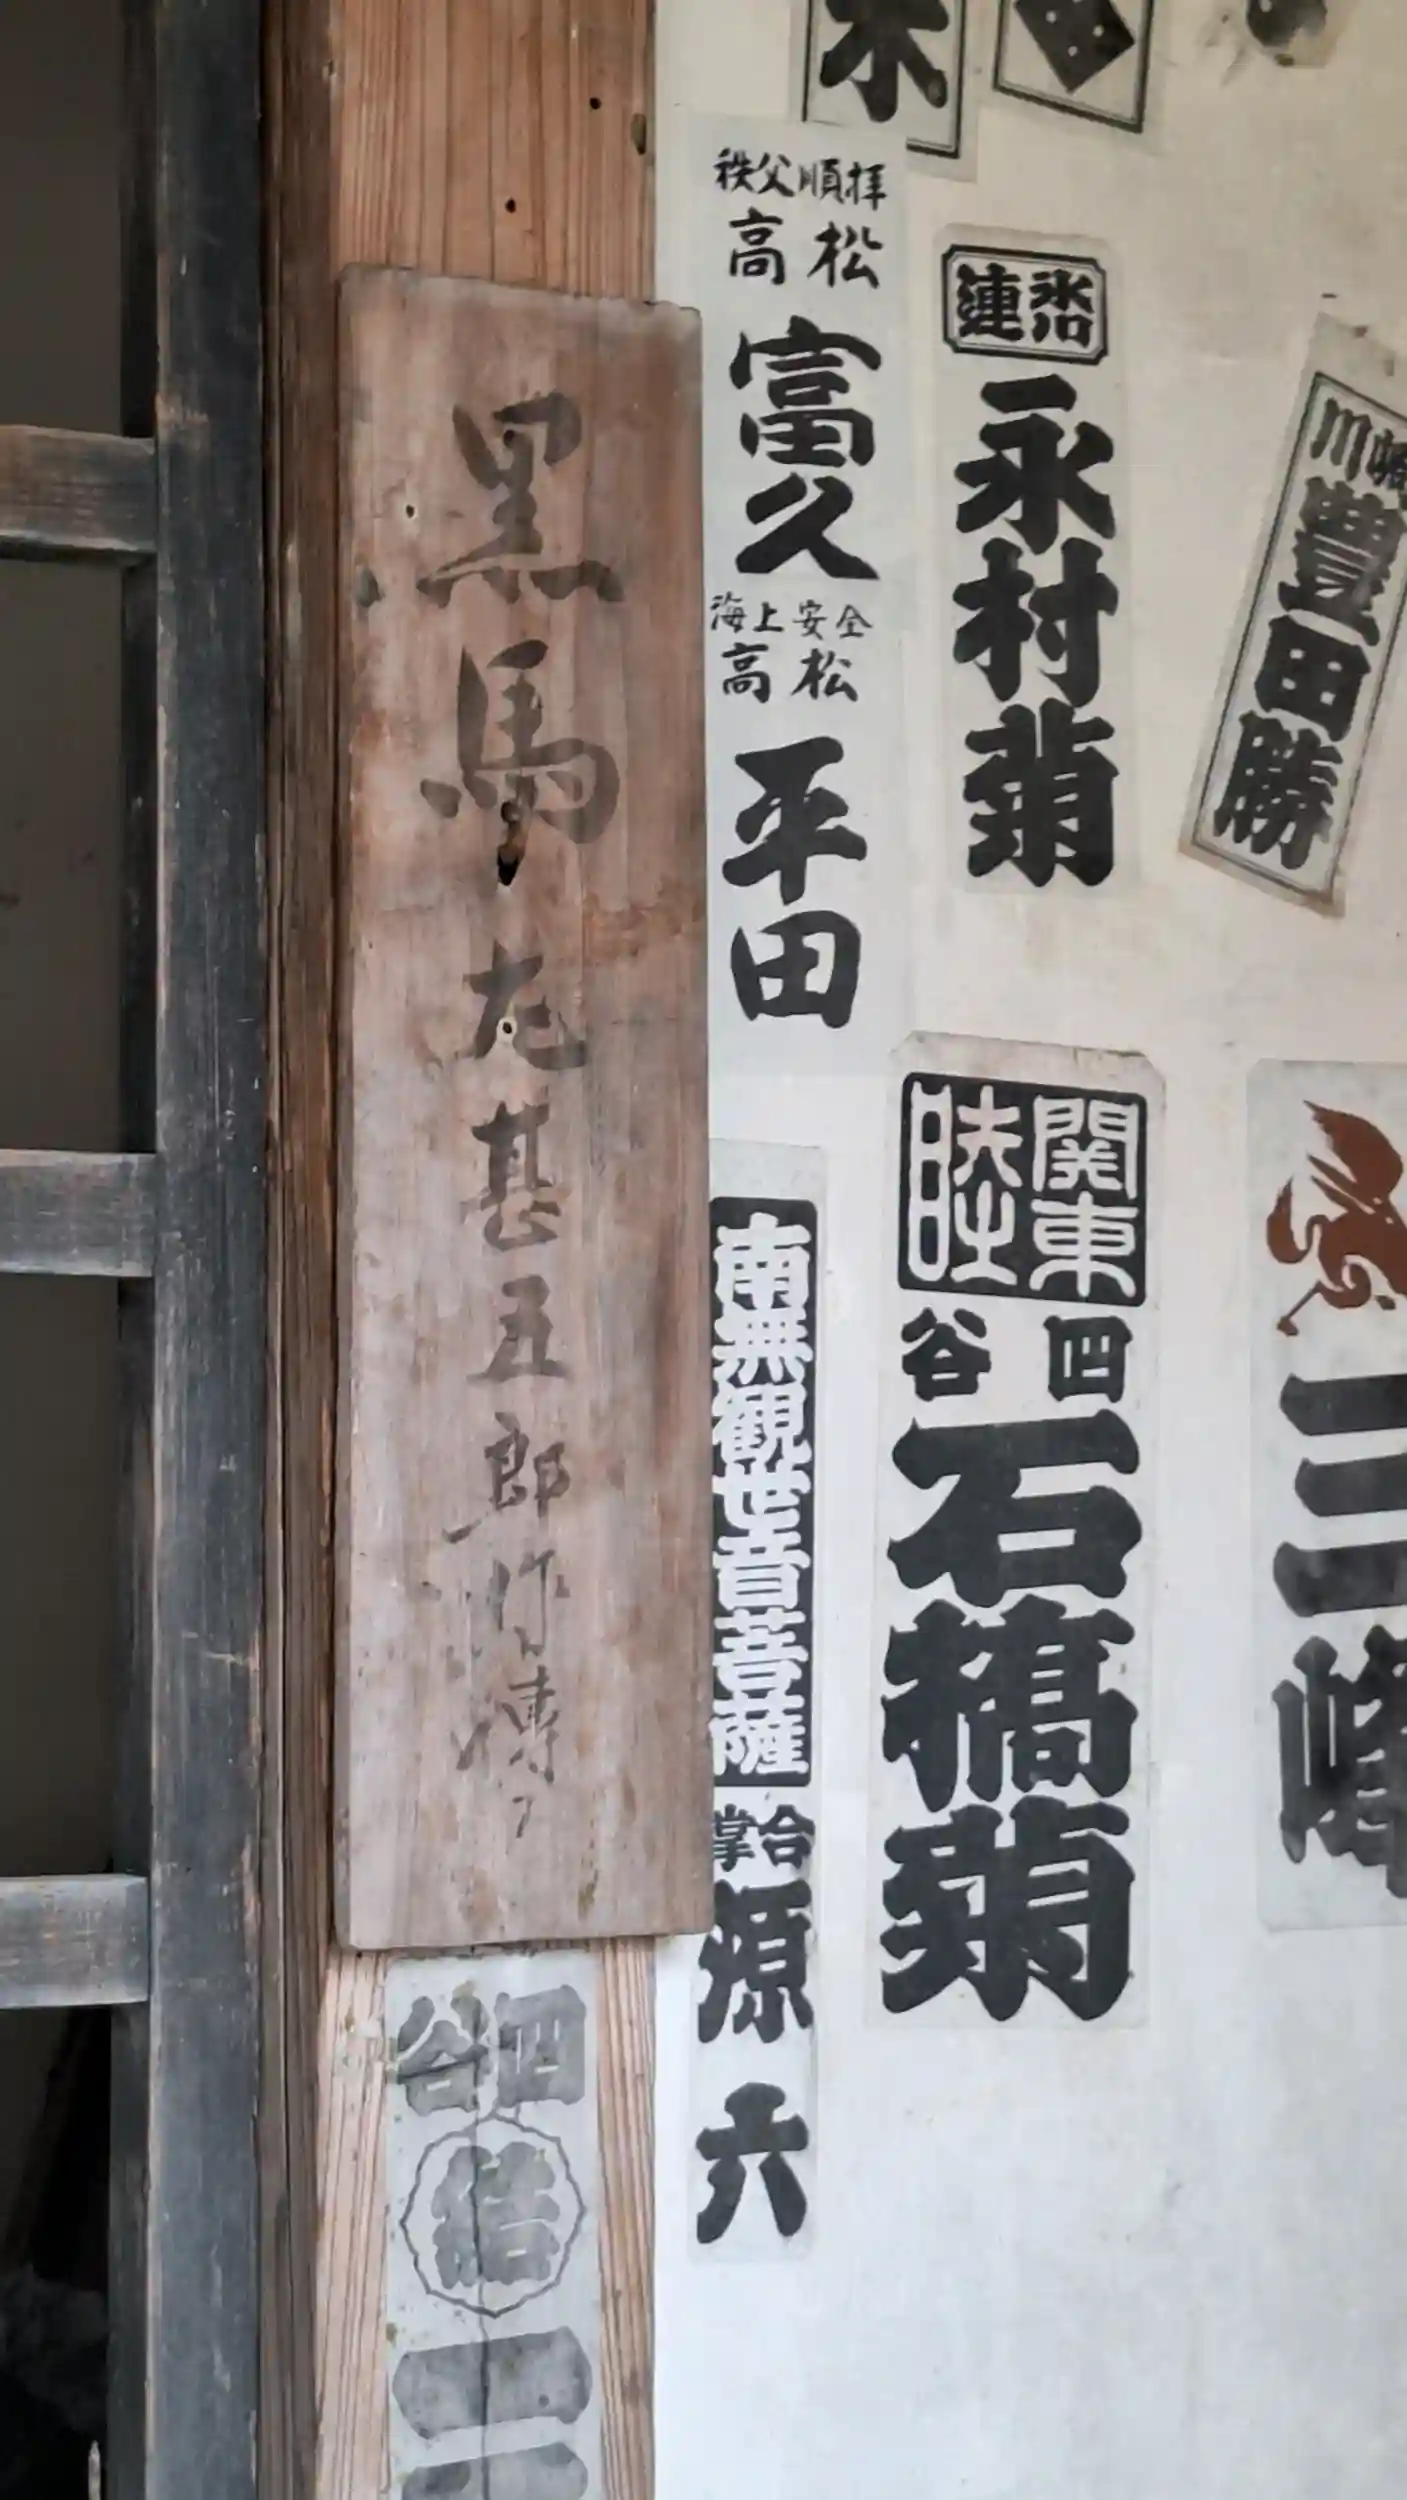 黒馬左甚五郎作傳フ
木
秩父順拝
高松
富久
海上安全
高松
平田
連
永村菊
川崎
豊田勝
関東
睦
四谷
石橋菊
南無観世音菩薩
合掌
源六
三峰
四谷
結
二